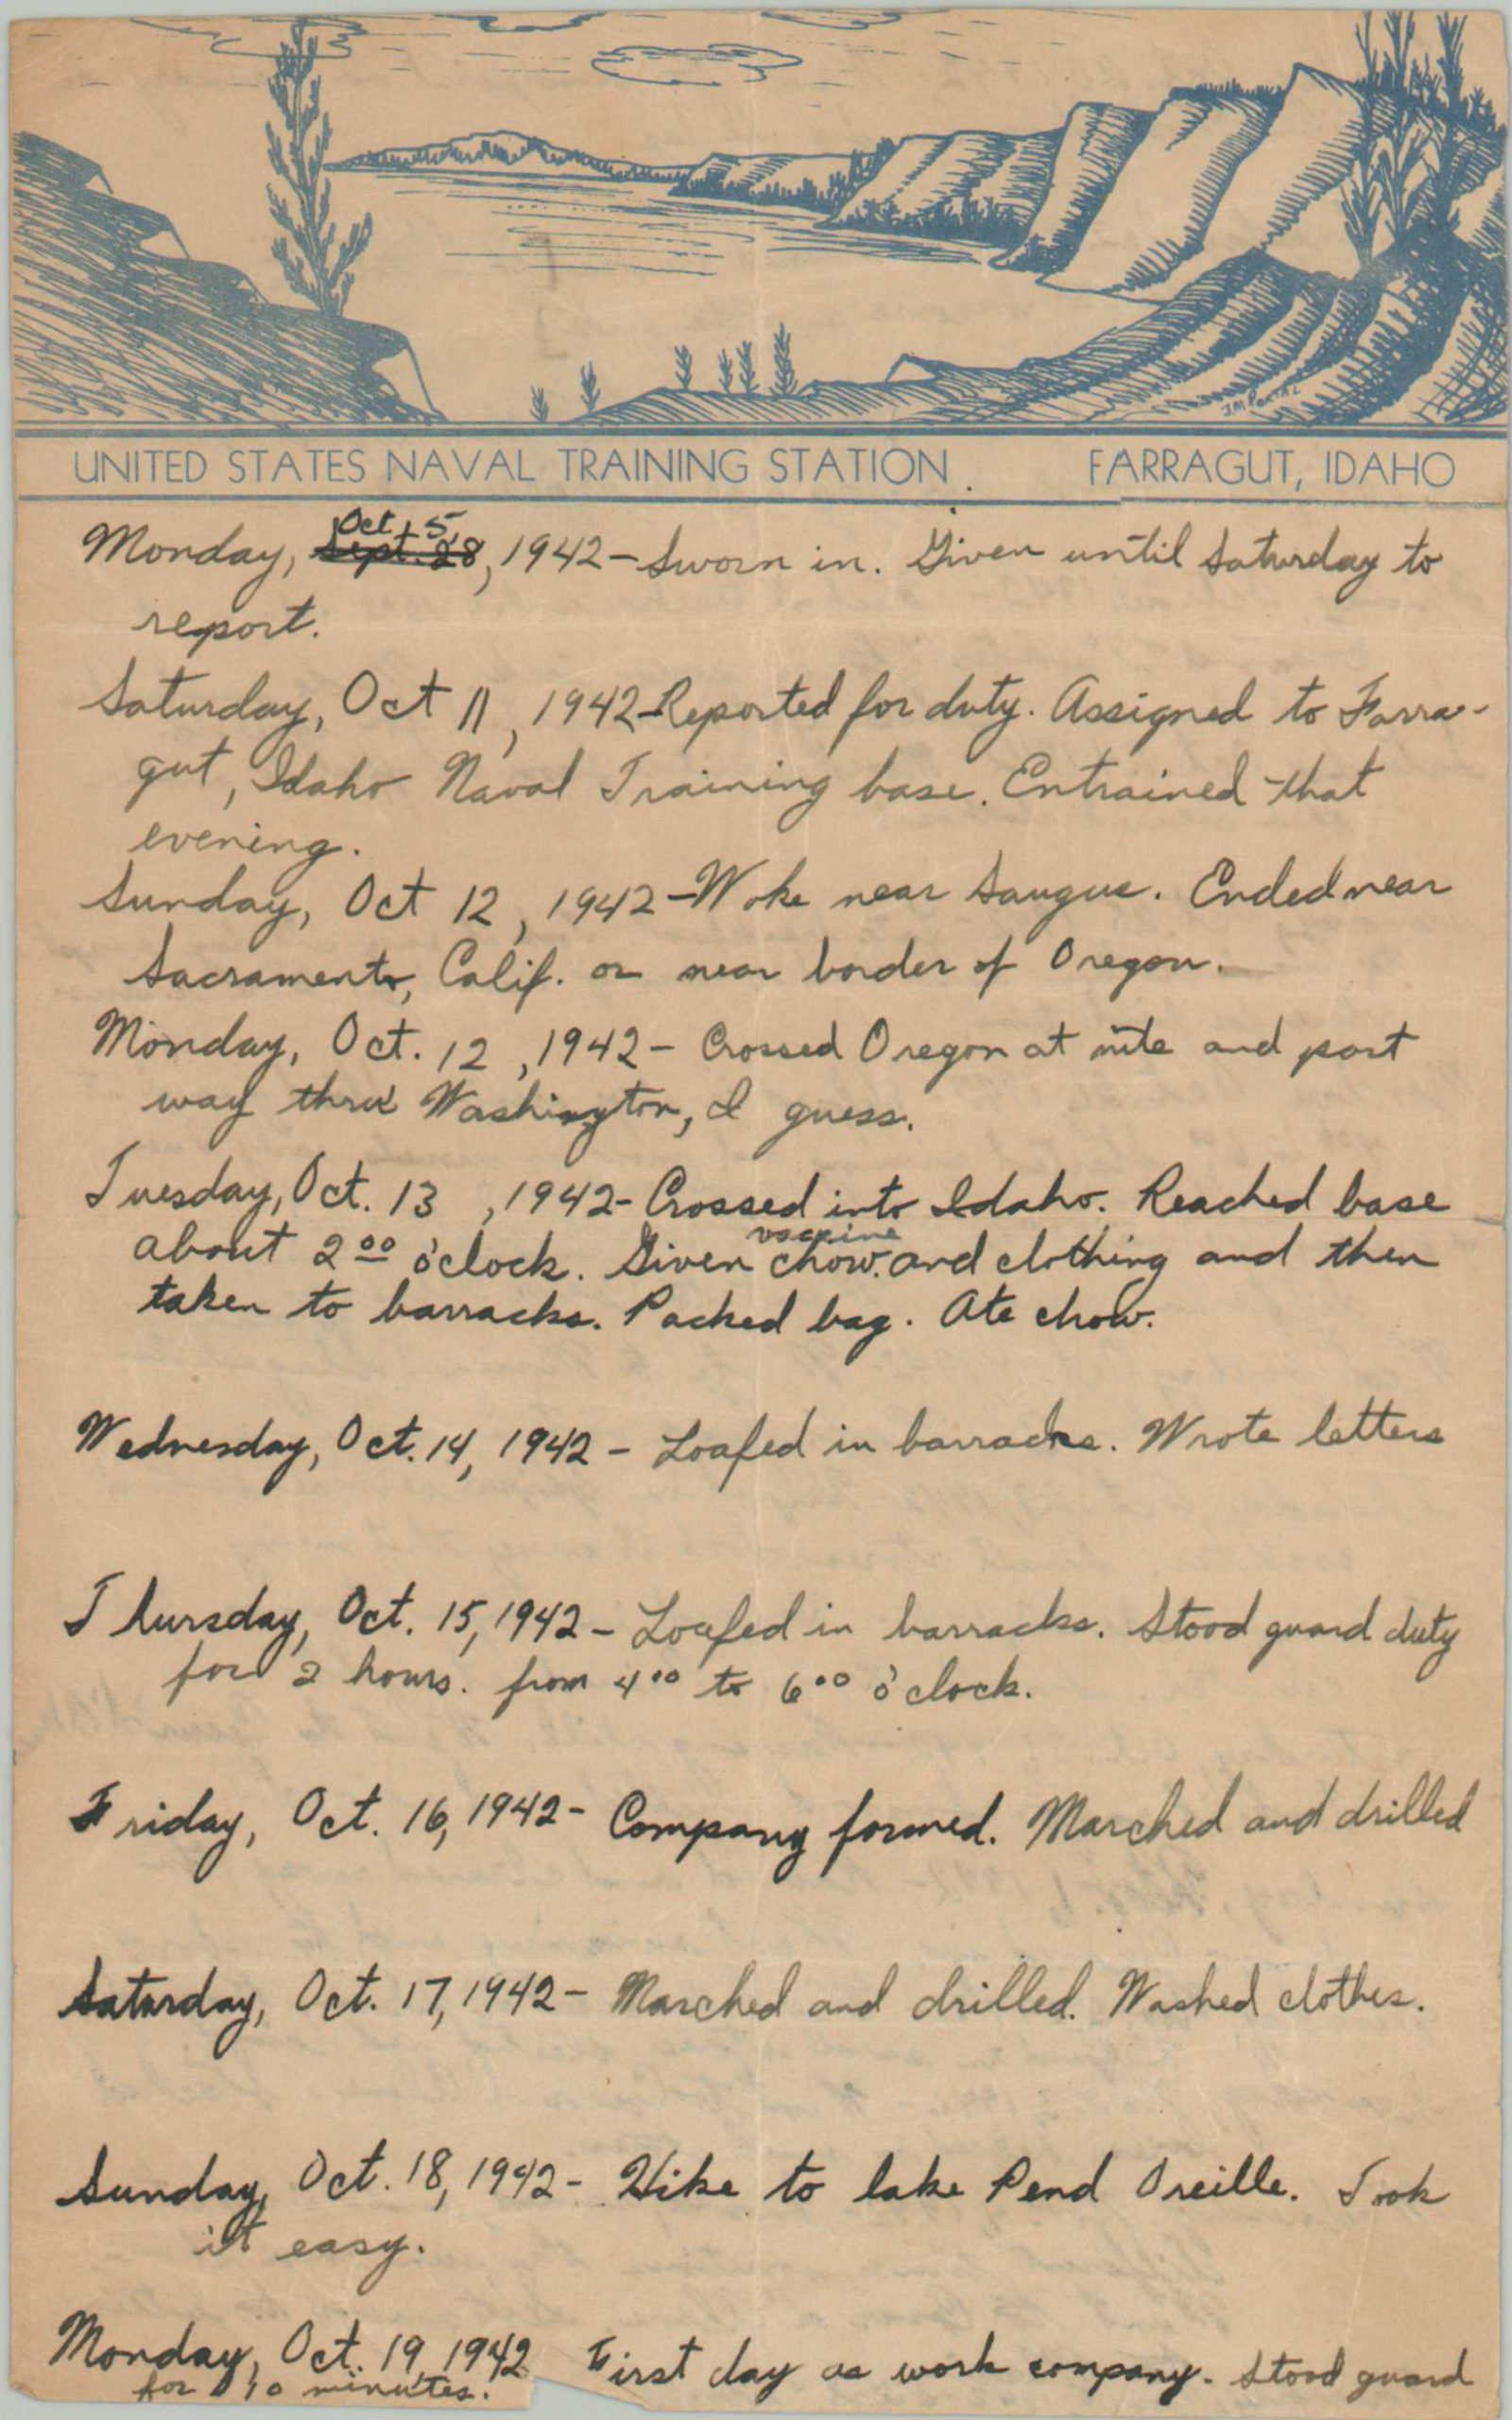 IM PORTAL
UNITED STATES NAVAL TRAINING STATION. FARRAGUT, IDAHO
Oct. 5
Monday, Sept. 28, 1942 - Sworn in. Given until Saturday to
report.
Saturday, Oct 11, 1942 - Reported for duty. Assigned to Farra-
gut, Idaho Naval Training base. Entrained that
evening.
Sunday, Oct 12, 1942 - Woke near Saugus. Ended near
Sacramento, Calif. or near border of Oregon.
Monday, Oct. 12, 1942 - Crossed Oregon at nite and part
way thru Washington, I guess.
Tuesday, Oct. 13, 1942 - Crossed into Idaho. Reached base
vaccine
about 2 00 o'clock. Given chow. and clothing and then
taken to barracks. Packed bag. Ate chow.
Wednesday, Oct. 14, 1942 - Loafed in barracks. Wrote letters
Thursday, Oct. 15, 1942 - Loafed in barracks. Stood guard duty
for 2 hours. from 4 00 to 6 00 o'clock.
Friday, Oct. 16, 1942 - Company formed. Marched and drilled
Saturday, Oct. 17, 1942 - Marched and drilled. Washed clothes.
Sunday, Oct. 18, 1942 - Hike to lake Pend Oreille. Took
it easy.
Monday, Oct. 19, 1942 First day as work company. Stood guard
for 10 minutes.